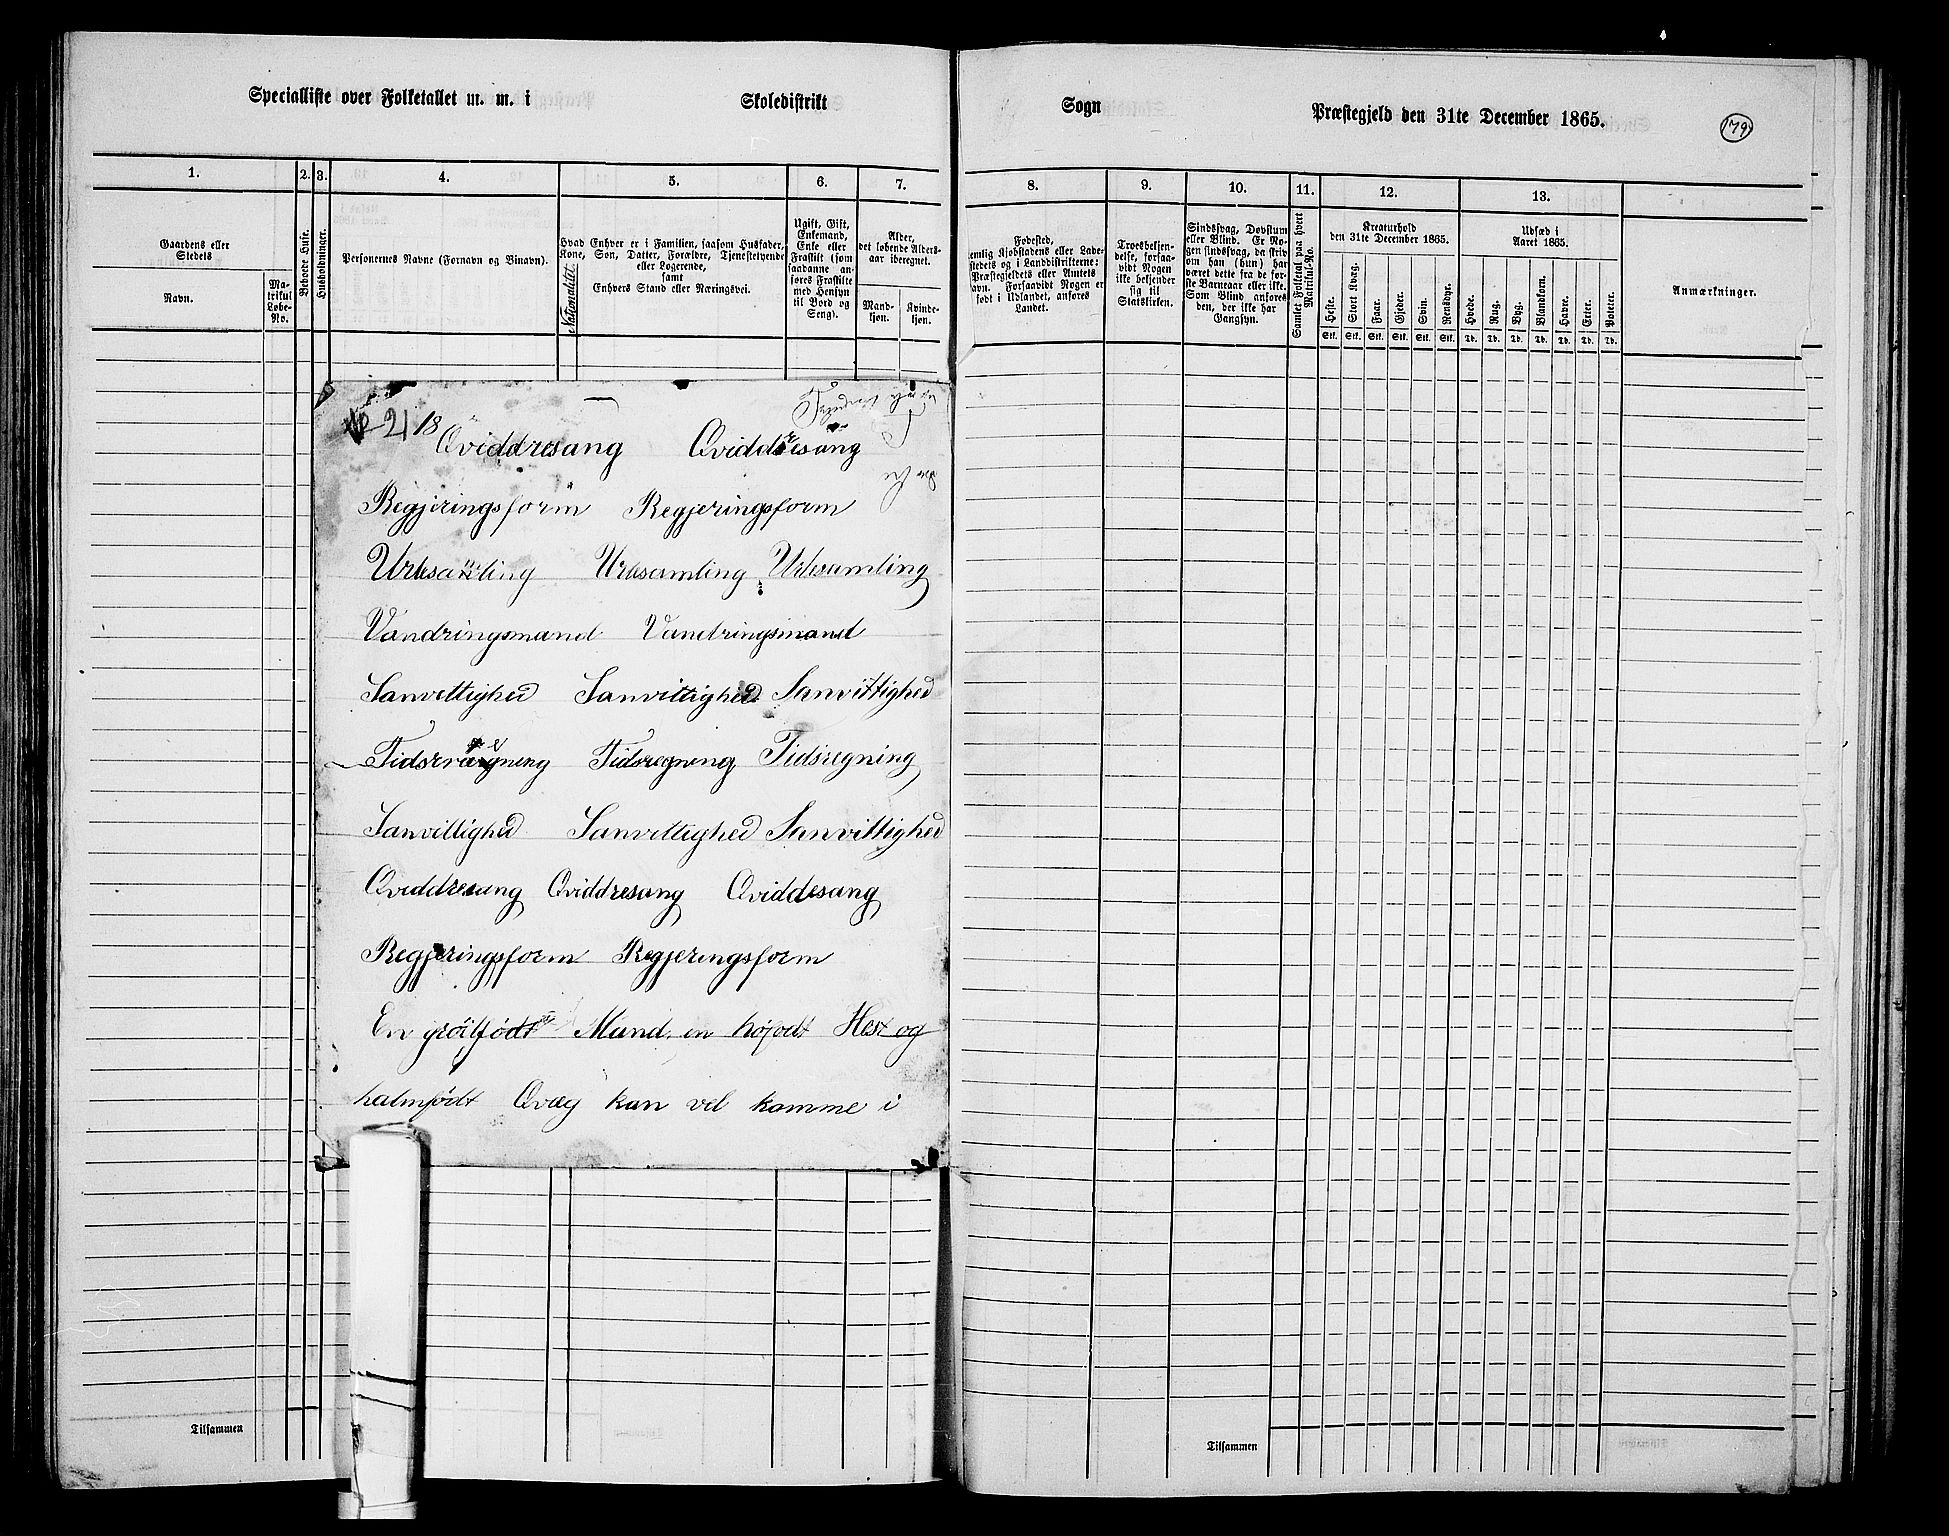 Specialliste over Folketallet m. m. i Skoledistrikt Sogn Præstegjeld den 31te December 1865.
179
1. 2. 3. 4. 5. 6. 7. 8. 9. 10. 11. 12. 13.
Gaardens eller Stedets
Navn.
Matrikul Løbe-No.
Beboede Huse.
Husholdninger.
Personernes Navne (Fornavn og Binavn).
Nationalitet.
Hvad Enhver er i Familien, saasom Husfader, Kone, Søn, Datter, Forældre, Tjenestetyende eller Logerende,
samt
Enhvers Stand eller Næringsvei.
Ugift, Gift, Enkemand, Enke eller Fraskilt (som saadanne anføres Fraskilte med Hensyn til Bord og Seng).
Alder, det løbende Alders-aar iberegnet.
Mand-kjøn.
Kvinde-kjøn.
Fødested,
nemlig Kjøbstadens eller Ladestedets og i Landdistrikterne: Præstegjeldets eller Amtets Navn. Forsaavidt Nogen er født i Udlandet, anføres Landet.
Troesbekjendelse, forsaavidt Nogen ikke bekjender sig til Statskirken.
Sindssvag, Døvstum eller Blind. Er Nogen sindssvag, da skriv om han (hun) har været dette fra de første Barneaar eller ikke. Som Blind anføres den, der ikke har Gangsyn.
Samlet Folketal paa hvert Matrikul-No.
Kreaturhold
den 31te December 1865.
Heste. Stort Kvæg. Faar. Gjeder. Svin. Rensdyr.
Stk. Stk. Stk. Stk. Stk. Stk.
Udsæd i
Aaret 1865.
Hvede. Rug. Byg. Blandkorn. Havre. Erter. Poteter.
Td. Td. Td. Td. Td. Td. Td.
Anmærkninger.
21 18
Qviddresang Qviddresang
Regjeringsform Regjeringsform
Urksamling Urksamling Urksamling
Vandringsmand Vandringsmand
Sanvettighed Sanvittighed Sanvittighed
Tidsrægning Tidsregning Tidsregning
Sanvittighed Sanvittighed Sanvittighed
Qviddresang Qviddresang Qviddesang
Regjeringsform Regjeringsform
En grötfödt Mand, en höjodt Hest og
halmfödt Qvæg kan vel komme i
Tilsammen Tilsammen